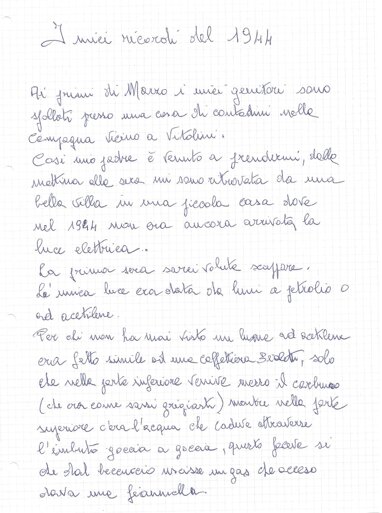 I miei ricordi del 1944
Ai primi di Marzo i miei genitori sono
sfollati presso una casa di contadini nella
campagna vicino a Vitolini.
Così mio padre è venuto a prendermi, dalla
mattina alla sera mi sono ritrovata da una
bella villa in una piccola casa dove
nel 1944 non era ancora arrivata la
luce elettrica.
La prima sera sarei voluta scappare.
L'unica luce era data da lumi a petrolio o
ad acetilene.
Per chi non ha mai visto un lume ad acetilene
era fatto simile ad una caffettiera, solo
che nella parte inferiore veniva messo il carburo
(che era come sassi grigiastri) mentre nella parte
superiore c'era l'acqua che cadeva attraverso
l'imbuto goccia a goccia, questo faceva si
che dal beccuccio uscisse un gas che acceso
dava una fiammella.